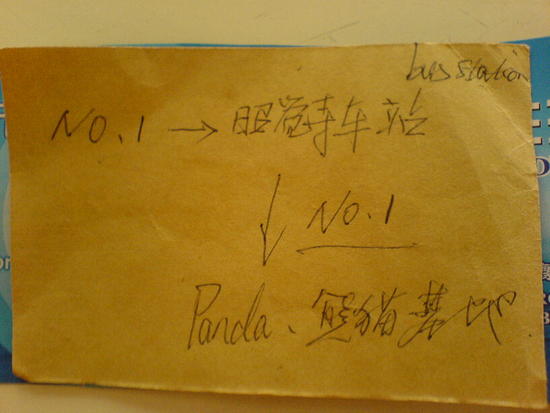 bus station
NO.1 → 昭觉寺车站
↓ NO.1
Panda、熊猫基地